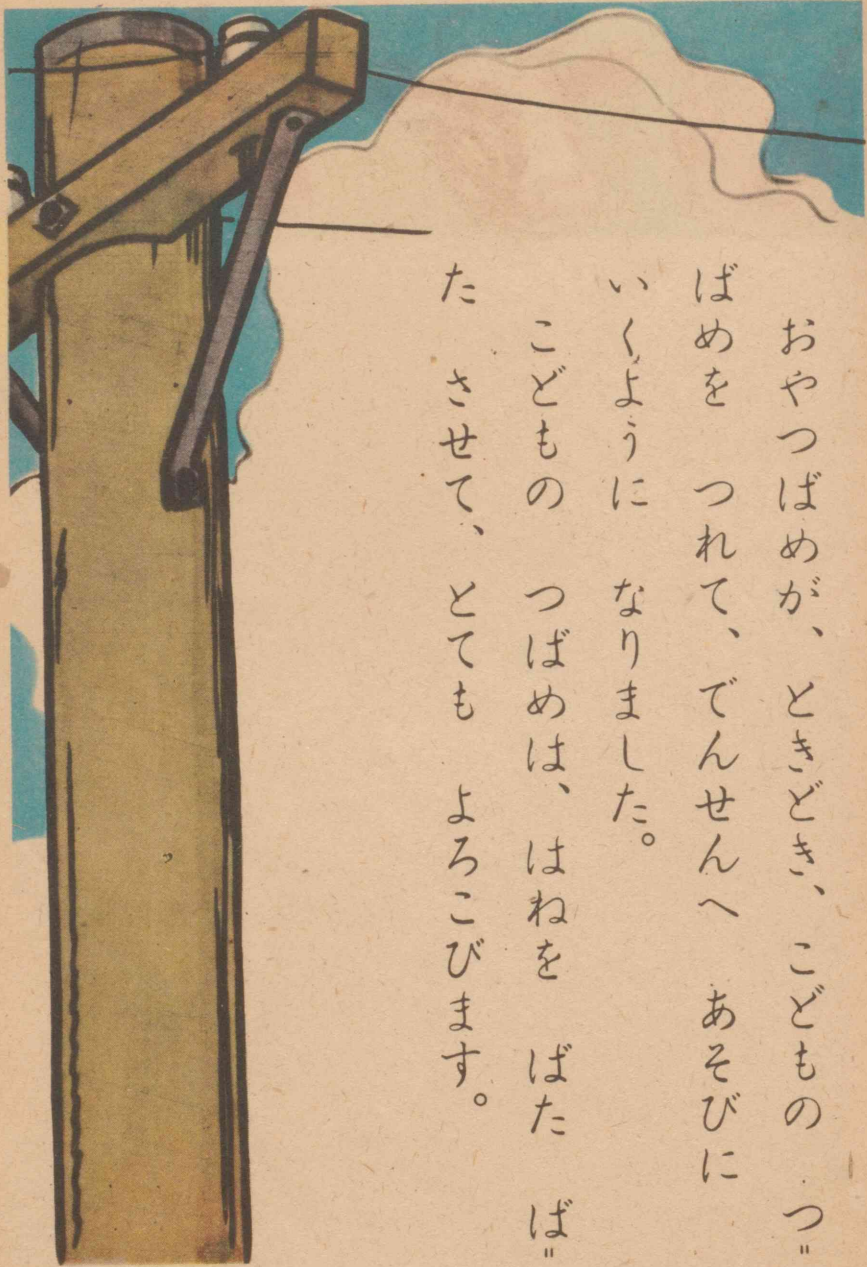 おやつばめが、ときどき、こどもの つ〓
ばめを つれて、でんせんへ あそびに
いくように なりました。
こどもの つばめは、はねを ばた ば〓
た させて、とても よろこびます。